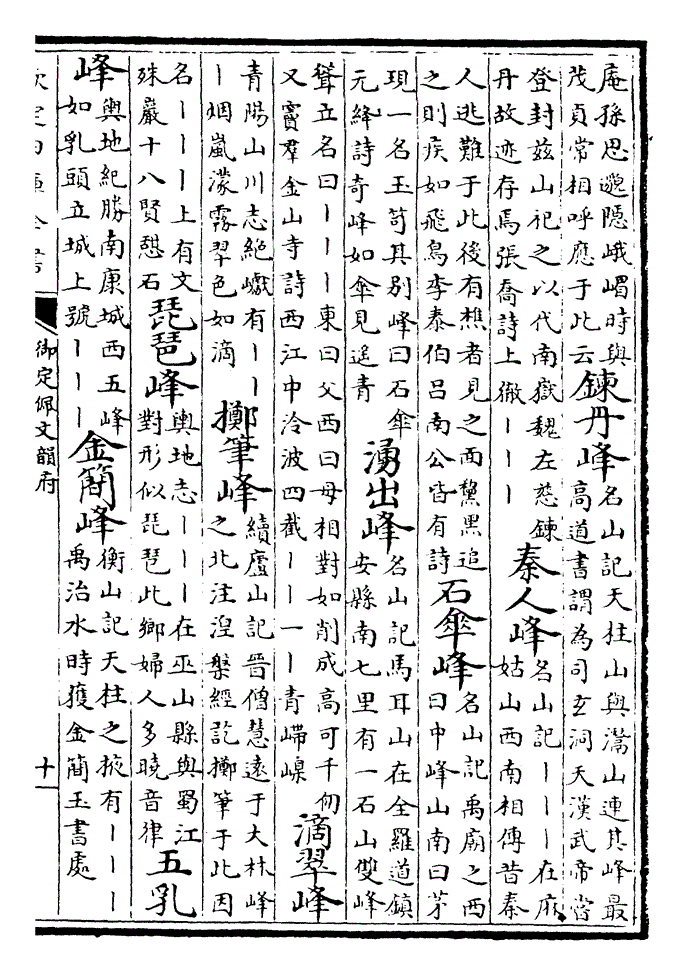 庵孫思邈隱峨嵋時與
茂貞常相呼應于此云
鍊丹峰
名山記天柱山與灊山連其峰最
高道書謂為司玄洞天漢武帝嘗
登封兹山祀之以代南嶽魏左慈鍊
丹故迹存焉張喬詩上徹丨丨丨
秦人峰
名山記丨丨丨在麻
姑山西南相傳昔秦
人逃難于此後有樵者見之面黧黑追
之則疾如飛鳥李泰伯吕南公皆有詩
石傘峰
名山記禹廟之西
曰中峰山南曰茅
現一名玉笥其别峰曰石傘
元絳詩奇峰如傘見遥青
湧出峰
名山記馬耳山在全羅道鎮
安縣南七里有一石山雙峰
聳立名曰丨丨丨東曰父西曰母相對如削成高可千仞
又竇羣金山寺詩西江中泠波四截丨丨一丨青㟃㠔
滴翠峰
青陽山川志絶巘有丨丨
丨烟嵐濛霧翠色如滴
擲筆峰
續廬山記晉僧慧遠于大林峰
之北注湼槃經訖擲筆于此因
名丨丨丨上有文
殊巖十八賢憇石
琵琶峰
輿地志丨丨丨在巫山縣與蜀江
對形似琵琶此鄉婦人多曉音律
五乳
峰
輿地紀勝南康城西五峰
如乳頭立城上號丨丨丨
金簡峰
衡山記天柱之掖有丨丨丨
禹治水時獲金簡玉書處
欽定四庫全書
御定佩文韻府
十